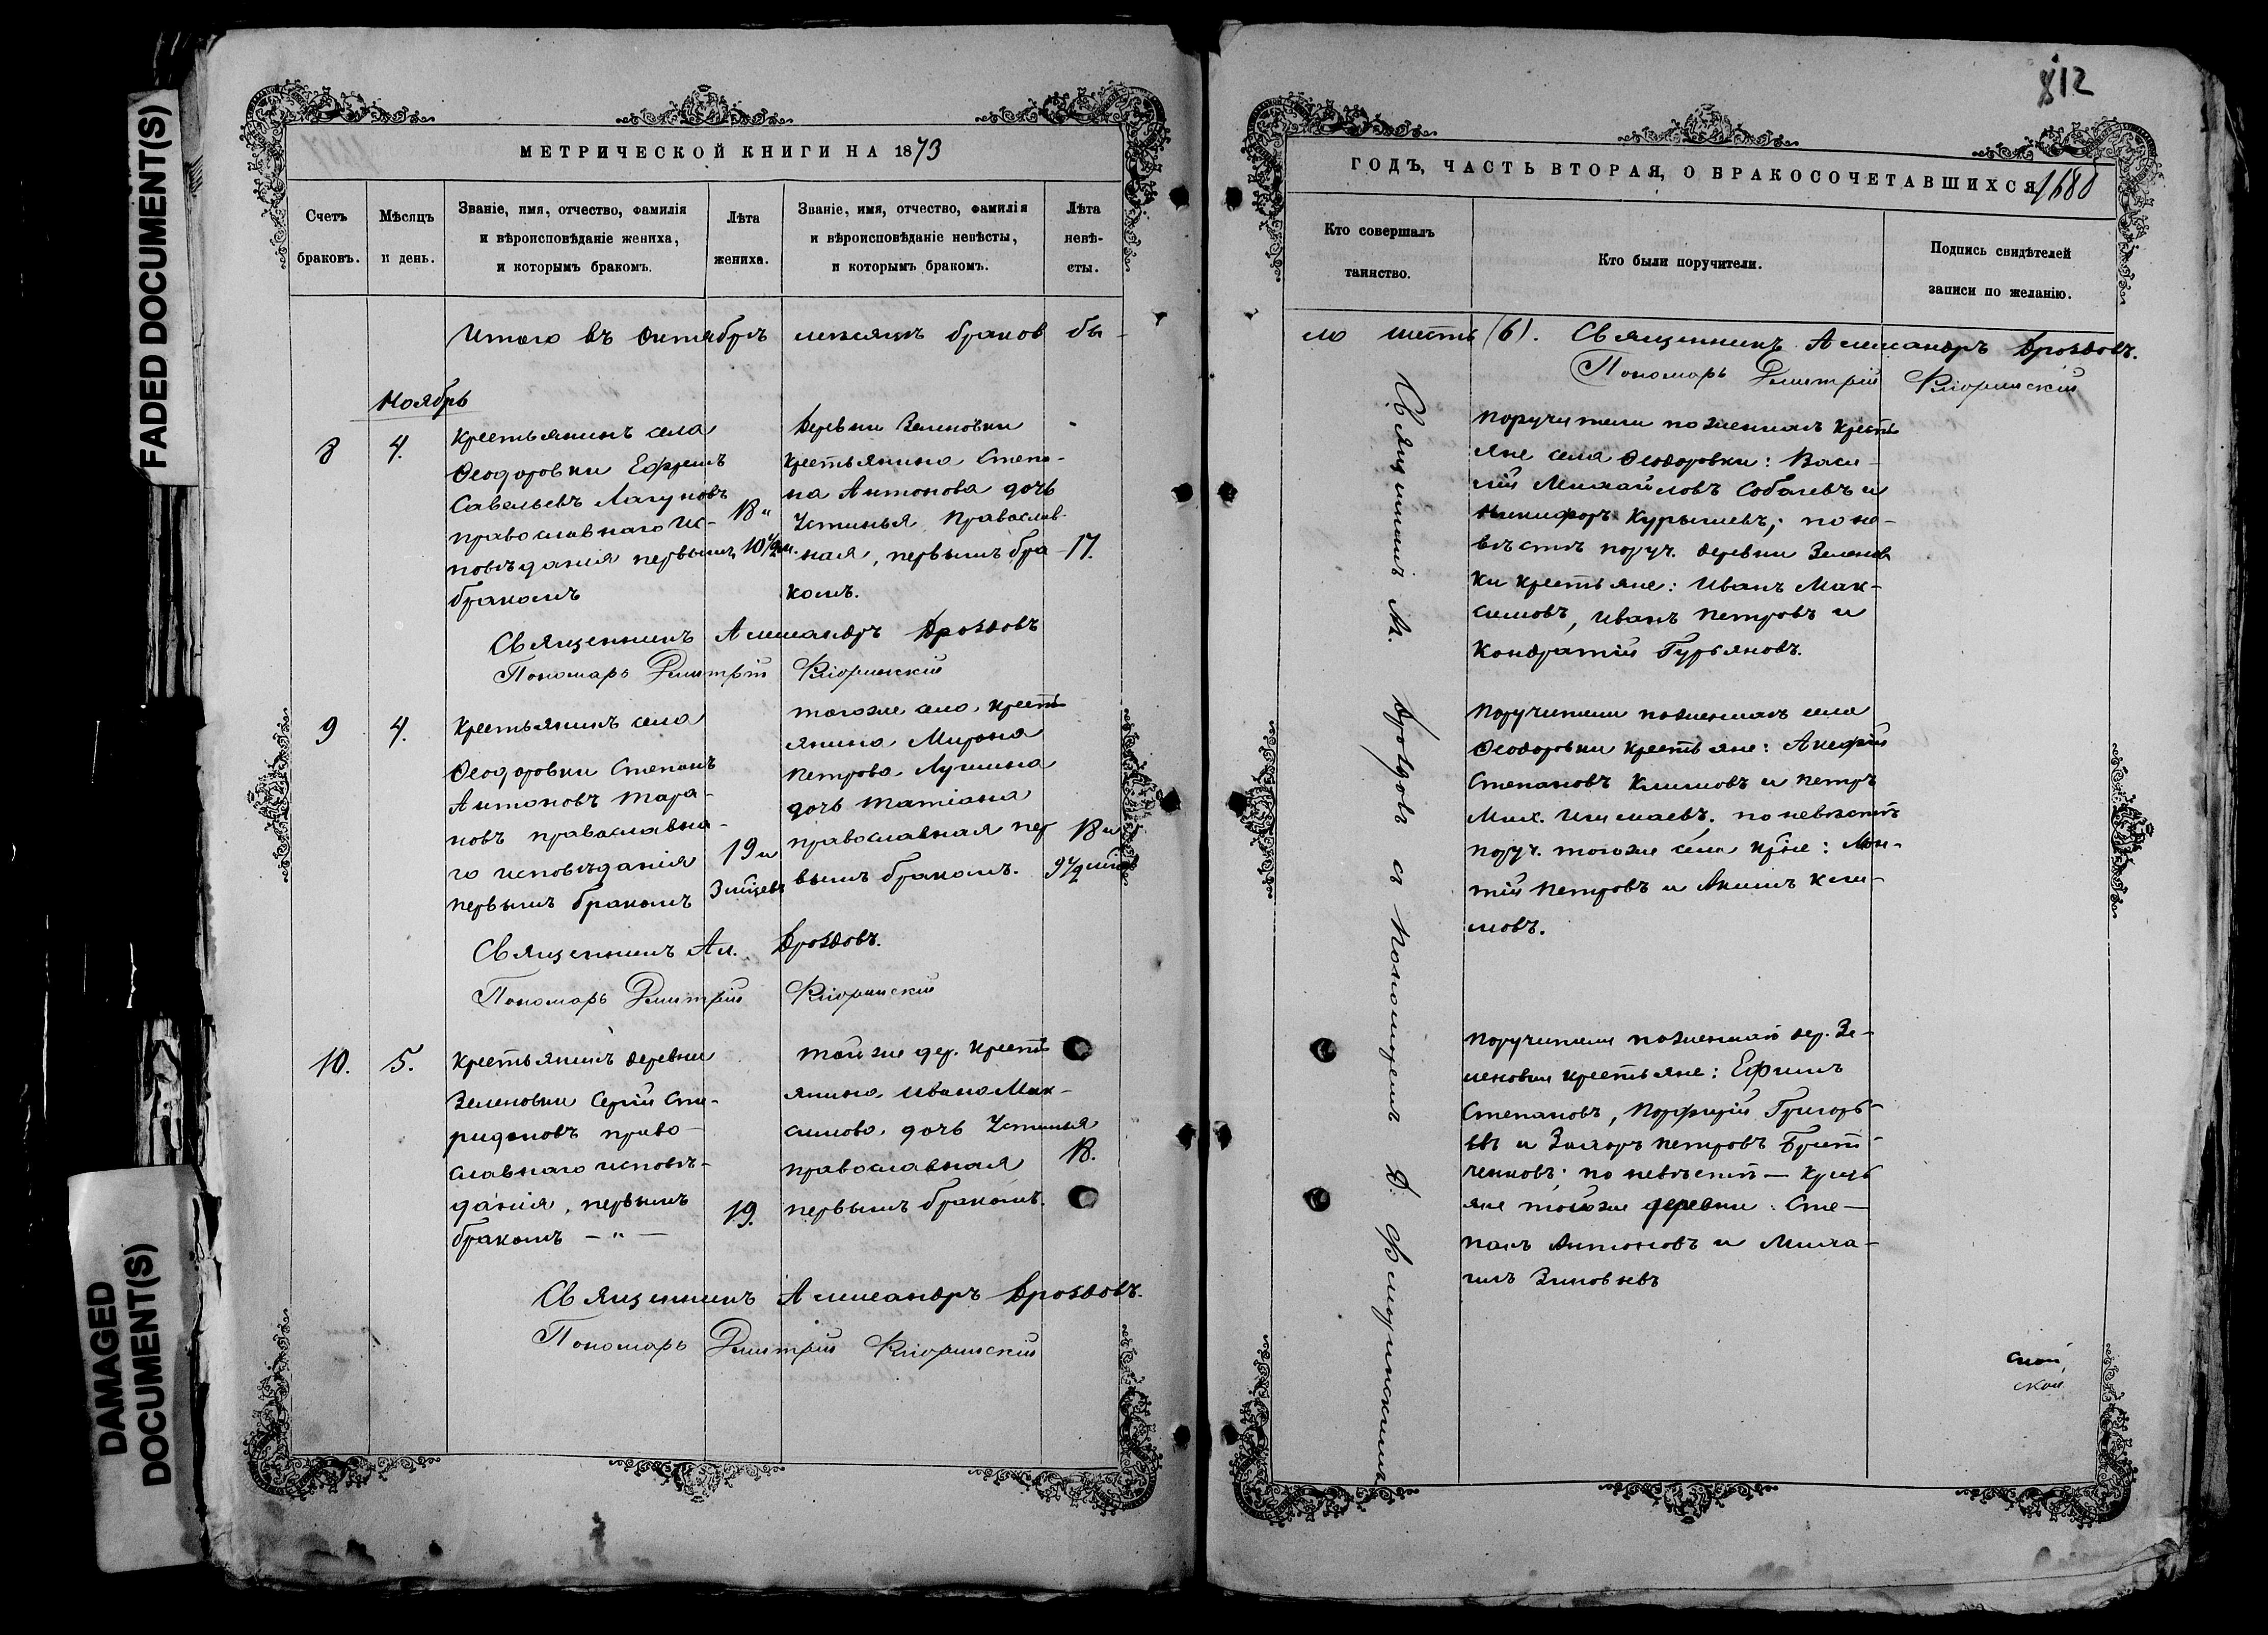 FADED DOCUMENT(S)
DAMAGED
DOCUMENT(S)
МЕТРИЧЕСКОЙ КНИГИ НА 1873
Счетъ
браковъ.
Мѣсяцъ
и день.
Званіе, имя, отчество, фамилія
и вѣроисповѣданіе жениха,
и которымъ бракомъ.
Лѣта
жениха.
Званіе, имя, отчество, фамилія
и вѣроисповѣданіе невѣсты,
и которымъ бракомъ.
Лѣта
невѣ-
сты.
Итого въ Октябрѣ мѣсяцѣ браков бы-
Ноябрь
8
4.
Крестьянинъ села
Ѳеодоровки Ефремъ
Савельевъ Лагуновъ
православнаго ис-
повѣданія первымъ
бракомъ
18 "
10 1/2 м.
Деревни Зеленовки
крестьянина Степа-
на Антонова дочь
Устинья православ-
ная, первымъ бра-
комъ.
17.
Священникъ Александръ Дроздовъ
Пономарь Димитрій
9
4.
Крестьянинъ села
Ѳеодоровки Степанъ
Антоновъ Тара-
новъ православна-
го исповѣданія
первымъ бракомъ
19 и
3 мѣсеца
тогоже села крестъ
янина Мирона
Петрова Лушина
дочь Татіана
православная пер
вымъ бракомъ.
18 и
9 1/2 мѣс
Священникъ Ал. Дроздовъ.
Пономарь Димитрій
10.
5.
Крестьянинъ деревни
Зеленовки Сергій Спи-
ридоновъ право-
славнаго исповѣ-
данія, первымъ
бракомъ - " -
19.
тойже дер. крестъ
янина Ивана Мак-
симова дочь Устинья
православная
первымъ бракомъ.
18.
Священникъ Александръ Дроздовъ.
Пономарь Димитрій
812
ГОДЪ, ЧАСТЬ ВТОРАЯ, О БРАКОСОЧЕТАВШИХСЯ 1680
Кто совершалъ
таинство.
Кто были поручители.
Подпись свидѣтелей
записи по желанію.
ло шесть (6). Священникъ Александръ Дроздовъ.
Пономарь Димитрій
Священникъ А. Дроздовъ съ Пономаремъ Д.
Поручители поженихѣ кресть
яне села Ѳеодоровки: Васи-
лій Михайловъ Собачевъ и
Никифоръ Курышевъ; по не-
вѣстѣ поруч. деревни Зеленов
ки крестьяне: Иванъ Мак-
симовъ, Иванъ Петровъ и
Кондратій Гурьяновъ.
Поручители поженихѣ села
Ѳеодоровки крестьяне:
Степановъ Климовъ и Петръ
Мих. по невѣстѣ
поруч. тогоже села кр̃не:
Петровъ и Акимъ Кли-
мовъ.
Поручители поженихѣ дер. Зе-
леновки крестьяне: Ефимъ
Степановъ, Порфирій Григорь-
евъ и Петровъ
по невѣстѣ — кресть
яне тойже деревни: Сте-
панъ Антоновъ и Миха-
илъ Зиновьевъ